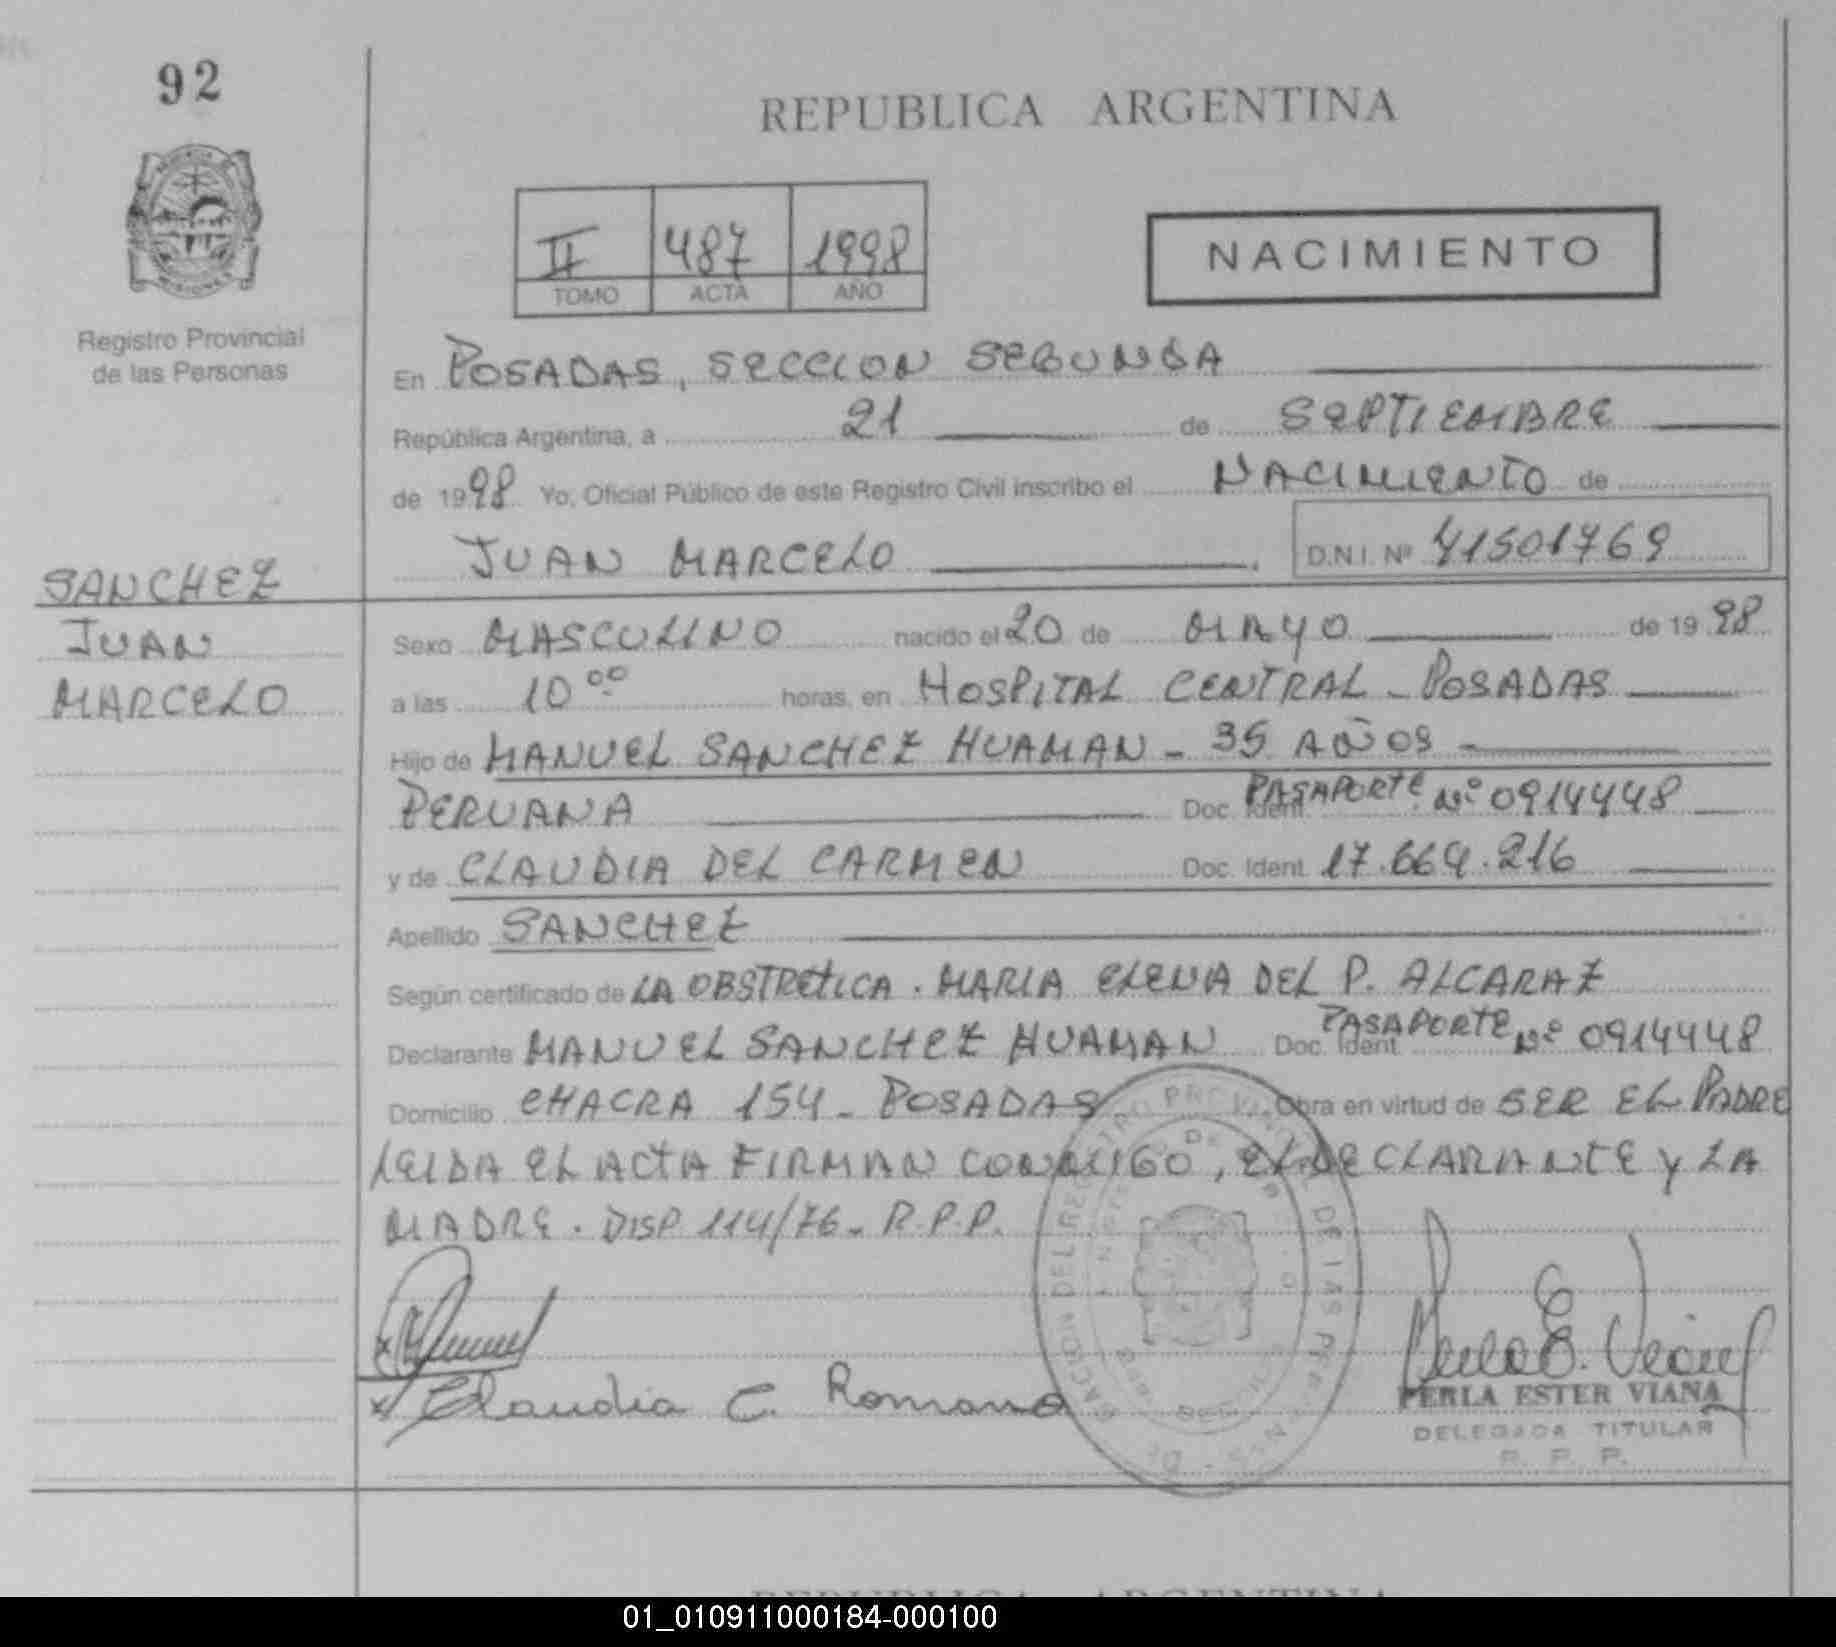 92
REPUBLICA ARGENTINA
II 487 1998
TOMO ACTA AÑO
NACIMIENTO
Registro Provincial
de las Personas
En POSADAS, SECCION SEGUNDA
República Argentina, a 21 de SEPTIEMBRE
de 1998 Yo, Oficial Público de este Registro Civil inscribo el NACIMIENTO de
JUAN MARCELO D.N.I. Nº 41501769
SANCHEZ
JUAN
MARCELO
Sexo MASCULINO nacido el 20 de MAYO de 1998
a las 10 00 horas, en HOSPITAL CENTRAL - POSADAS
Hijo de MANUEL SANCHEZ HUAMAN - 35 AÑOS -
PERUANA Doc. Ident. PASAPORTE Nº 0914448
y de CLAUDIA DEL CARMEN Doc. Ident. 17.664.216
Apellido SANCHEZ
Según certificado de LA OBSTRETICA. MARIA ELENA DEL P. ALCARAZ
Declarante MANUEL SANCHEZ HUAMAN Doc. Ident. PASAPORTE Nº 0914448
Domicilio CHACRA 154 - POSADAS Obra en virtud de SER EL PADRE
LEIDA EL ACTA FIRMAN CONMIGO, EL DECLARANTE Y LA
MADRE. DISP. 114/76 - R.P.P.
x Claudia C. Romano
Perla E. Viana
PERLA ESTER VIANA
DELEGADA TITULAR
R. P. P.
REPUBLICA ARGENTINA
01_010911000184-000100